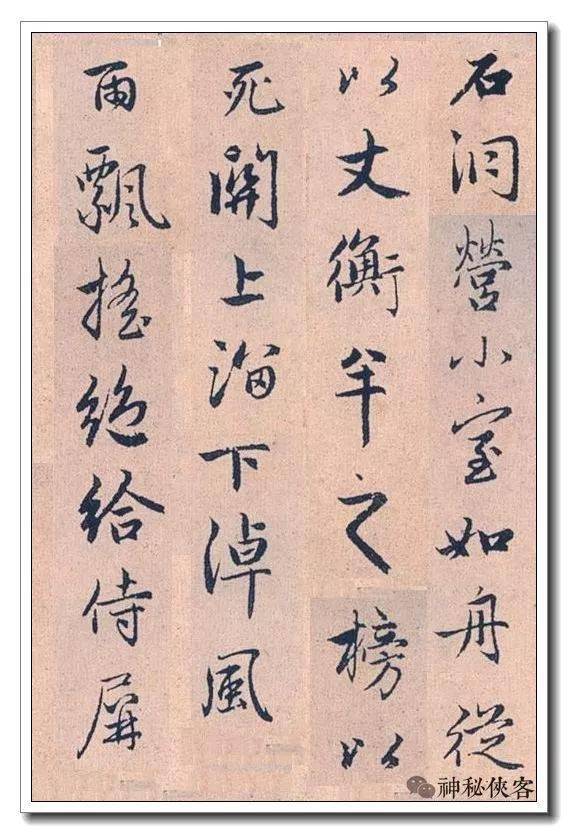 石洞營小室如舟從
以丈衡半之榜以
死關上溜下淖風
雨飄搖絕給侍屏
神秘俠客